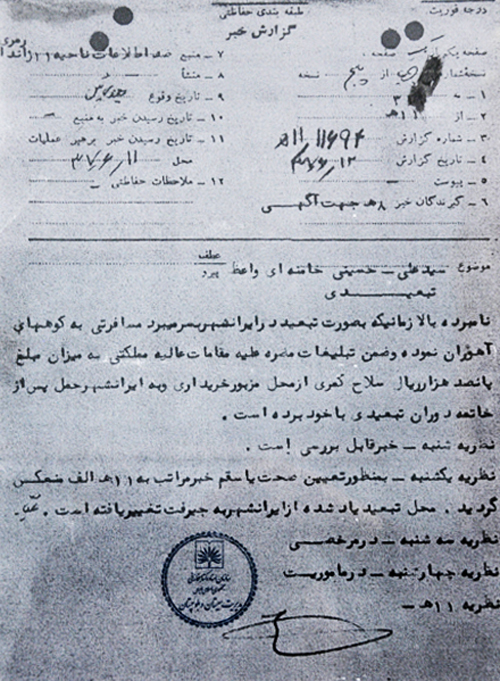 درجه فوریت
طبقه بندی حفاظتی
گزارش خبر
صفحه یک از صفحه
نسخه شماره از پنج نسخه
۱ – به ۳
۲ – از ۱۱هـ
۳ – شماره گزارش ۱۱۶۹۴/۱۱هـ
۴ – تاریخ گزارش
۵ – پیوست –
۶ – گیرندگان خبر ۸هـ جهت آگهی
۷ – منبع ضد اطلاعات ناحیه ۱۱ ژاندارمری
۸ – منشأ
۹ – تاریخ وقوع
۱۰ – تاریخ رسیدن خبر به منبع –
۱۱ – تاریخ رسیدن خبر برهبر عملیات
محل ۳۷/۶/۱۱
۱۲ – ملاحظات حفاظتی –
موضوع سیدعلی – حسینی خامنه ای واعظ
تبعیدی
عطف
پیرو
نامبرده بالا زمانیکه بصورت تبعید در ایرانشهر بسر میبرد مسافرتی به کوههای
آهوران نموده وضمن تبلیغات مضره علیه مقامات عالیه مملکتی به میزان مبلغ
پانصد هزار ریال سلاح کمری از محل مزبور خریداری وبه ایرانشهر حمل پس از
خاتمه دوران تبعیدی با خود برده است .
نظریه شنبه – خبر قابل بررسی است .
نظریه یکشنبه – بمنظور تعیین صحت یا سقم خبر مراتب به ۱۱هـ الف منعکس
گردید . محل تبعید یاد شده از ایرانشهر به جیرفت تغییر یافته است .
نظریه سه شنبه – در مرخصی
نظریه چهارشنبه – در ماموریت
نظریه ۱۱هـ –